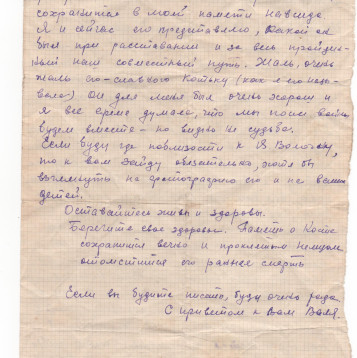 сохранится в моей памяти навсегда
Я и сейчас его представляю, какой он
был при расставании и за весь пройден-
ный нам совместный путь. Жаль, очень
жаль его - славного Котьку (как я его назы-
вала) Он для меня был очень хорош и
я всё время думала, что мы после войны
будем вместе - но видно не судьба.
Если буду где поблизости к Вологде,
то к вам зайду обязательно, хотя бы
взглянуть на фотографию его и на ваших
детей.
Оставайтесь живы и здоровы.
Берегите свое здоровье. Память о Косте
сохранится вечно и проклятым немцам
отомстится его ранняя смерть
Если вы будите писать, буду очень рада
С приветом к Вам Валя